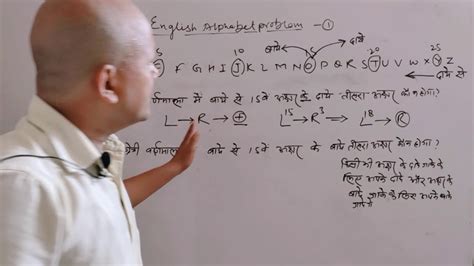 English Alphabet problem - ①
बायें दायें
5 10 15 20 25
E F G H I J K L M N O P Q R S T U V W X Y Z
← दायें से
वर्णमाला में बायें से 15वें अक्षर के दायें तीसरा अक्षर कौन होगा?
L → R → + L¹⁵ R³ ⇒ L¹⁸ → R
वर्णमाला बायें से 15वें अक्षर के बायें तीसरा अक्षर कौन होगा?
किसी भी अक्षर के दायें जाने के
लिए अपने दायें और अक्षर के
बायें जाने के लिए अपने बायें